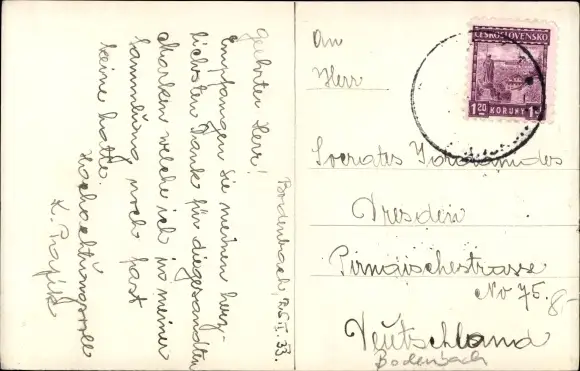 Bodenbach, 25.II.33.
Geehrter Herr!
Empfangen Sie meinen herz-
lichsten Dank für die gesandten
Marken welche ich in meiner
Sammlung noch fast
keine hatte.
Hochachtungsvoll
ČESKOSLOVENSKO
1.20 KORUNY
An
Herr
Socrates
Dresden
Pirnaischestrasse
No 75.
8.-
Deutschland
Bodenbach